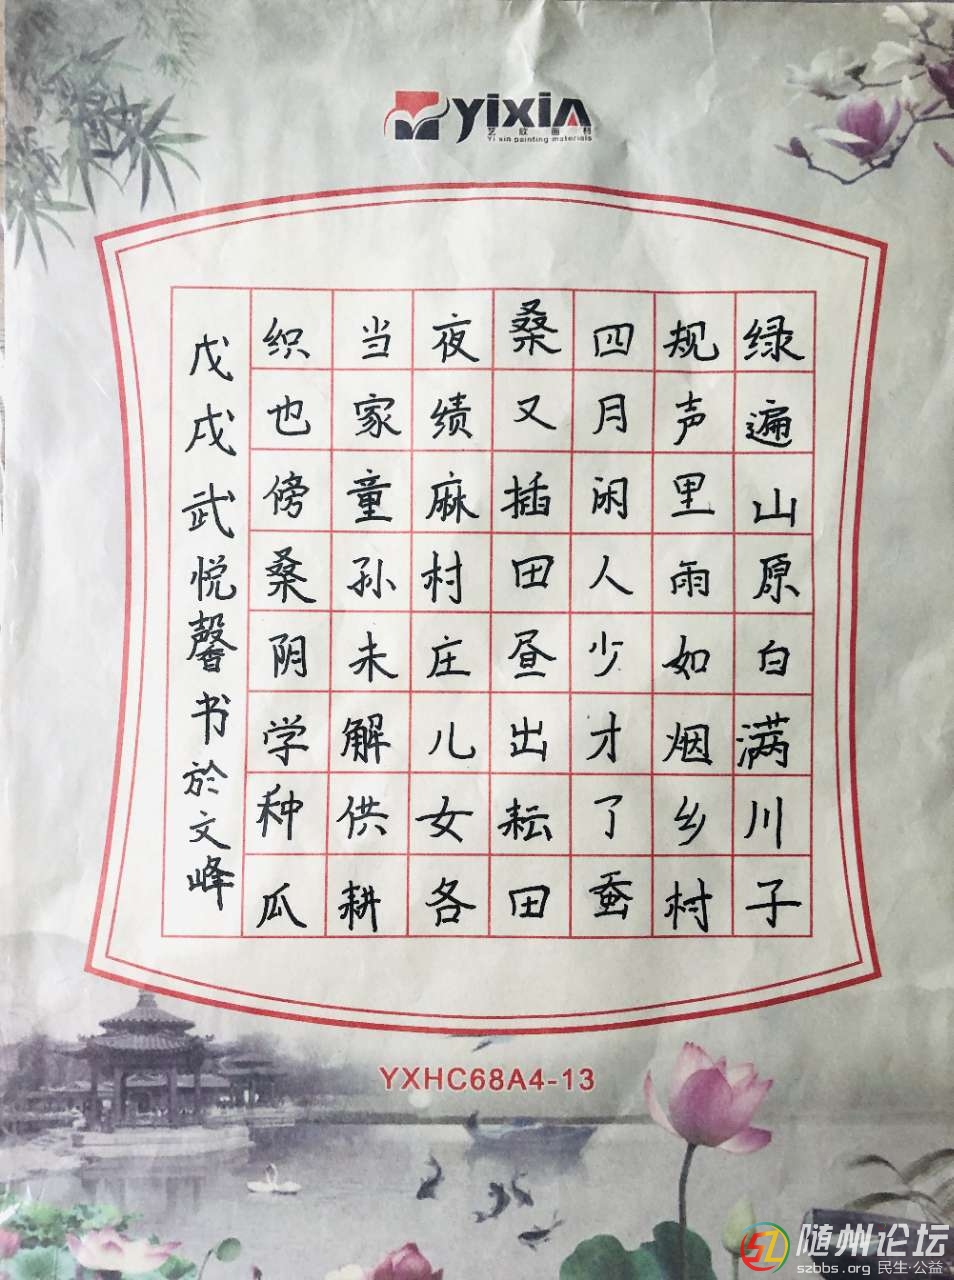 yixin
艺欣画材
Yi xin painting materials
绿遍山原白满川子
规声里雨如烟乡村
四月闲人少才了蚕
桑又插田昼出耘田
夜绩麻村庄儿女各
当家童孙未解供耕
织也傍桑阴学种瓜
戊戌武悦馨书於文峰
YXHC68A4-13
随州论坛
szbbs.org 民生·公益